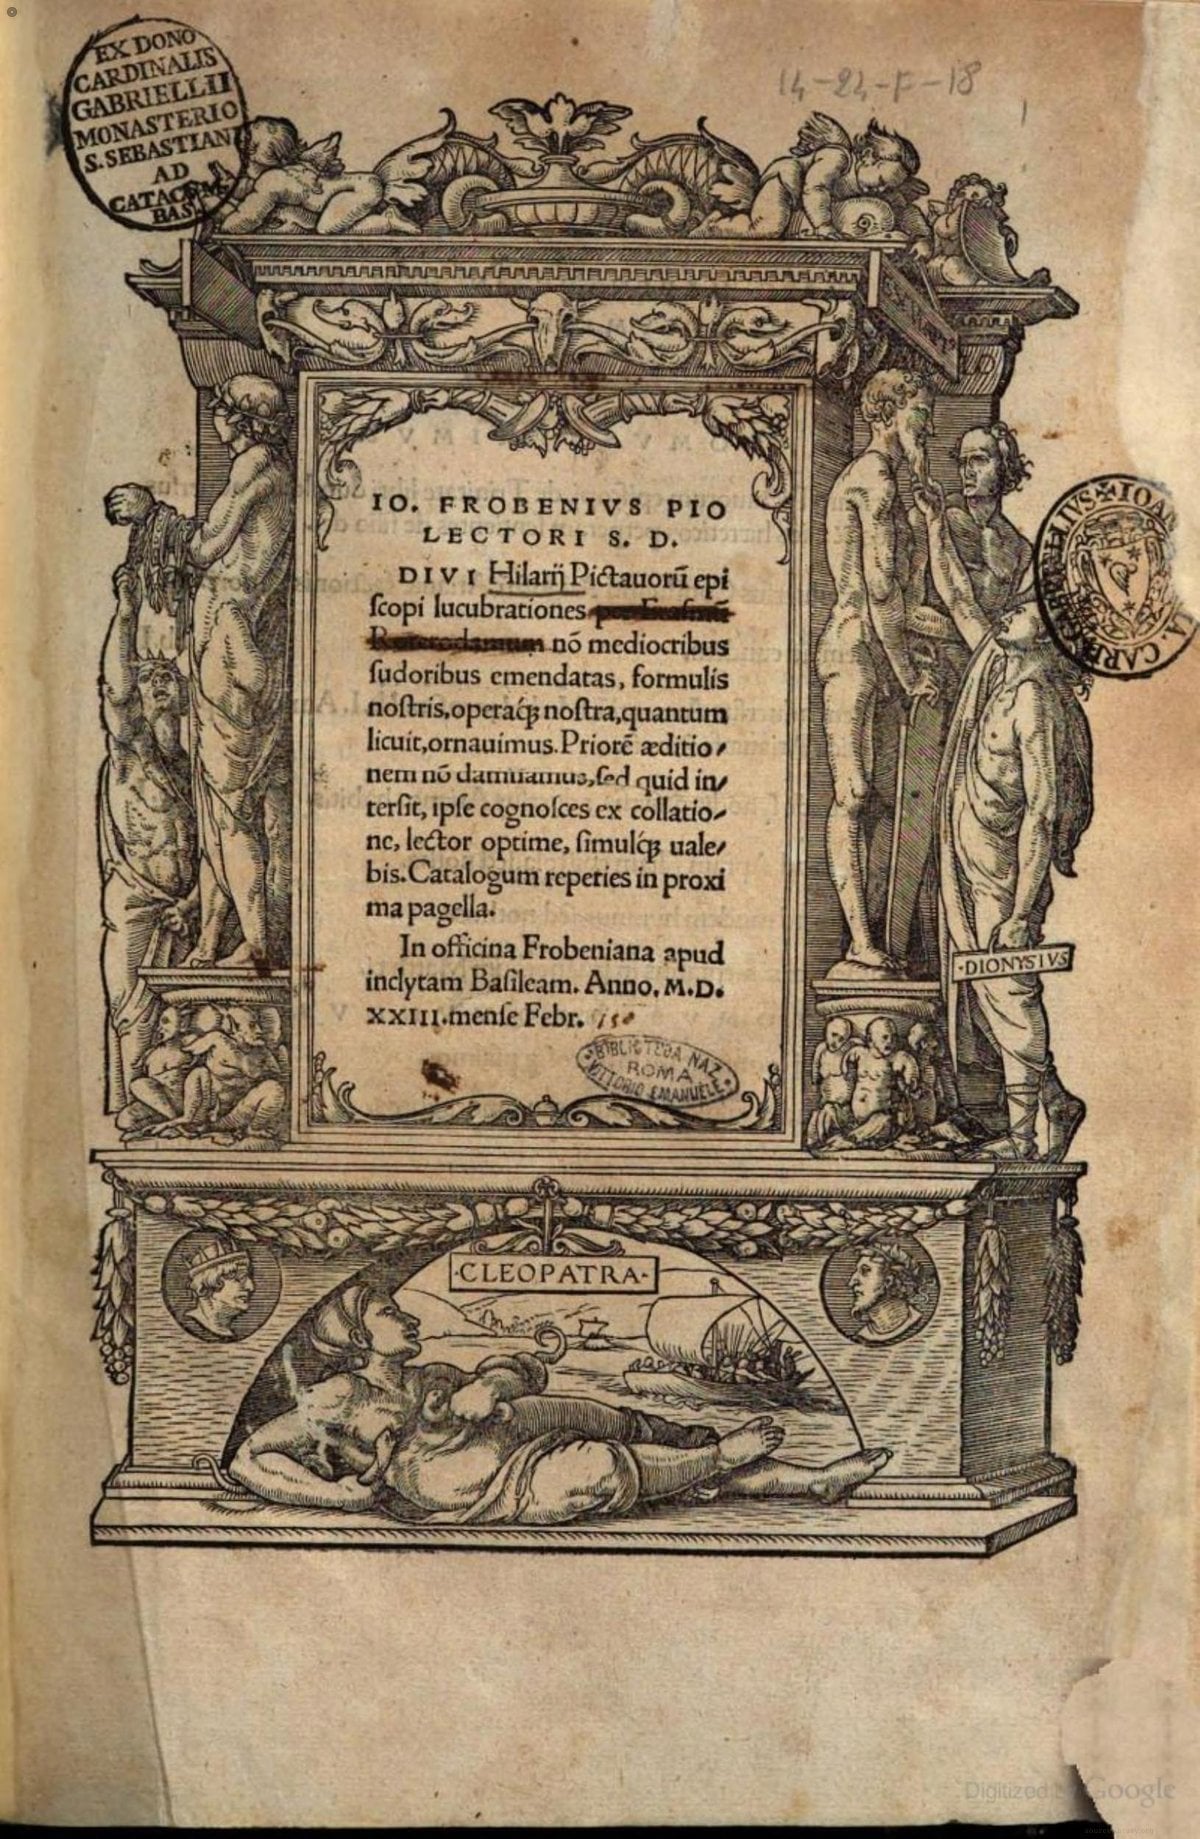 EX DONO
CARDINALIS
GABRIELLII
MONASTERIO
S. SEBASTIANI
AD
CATACUM.
BAS.
14-24-F-18
IO. FROBENIVS PIO
LECTORI S. D.
DIVI Hilarij Pictauorū epi
ſcopi lucubrationes per Eraſmū
Roterodamum nō mediocribus
ſudoribus emendatas, formulis
noſtris,operaq́ꝫ noſtra,quantum
licuit,ornauimus.Priorē æditio⸗
nem nō damnamus,ſed quid in⸗
terſit, ipſe cognoſces ex collatio⸗
ne, lector optime, ſimulq́ꝫ uale⸗
bis.Catalogum reperies in proxi
ma pagella.
In officina Frobeniana apud
inclytam Baſileam. Anno, M.D.
XXIII.menſe Febr.
BIBLIOTECA NAZ.
ROMA
VITTORIO EMANUELE
·DIONYSIVS
·CLEOPATRA·
Digitized by Google